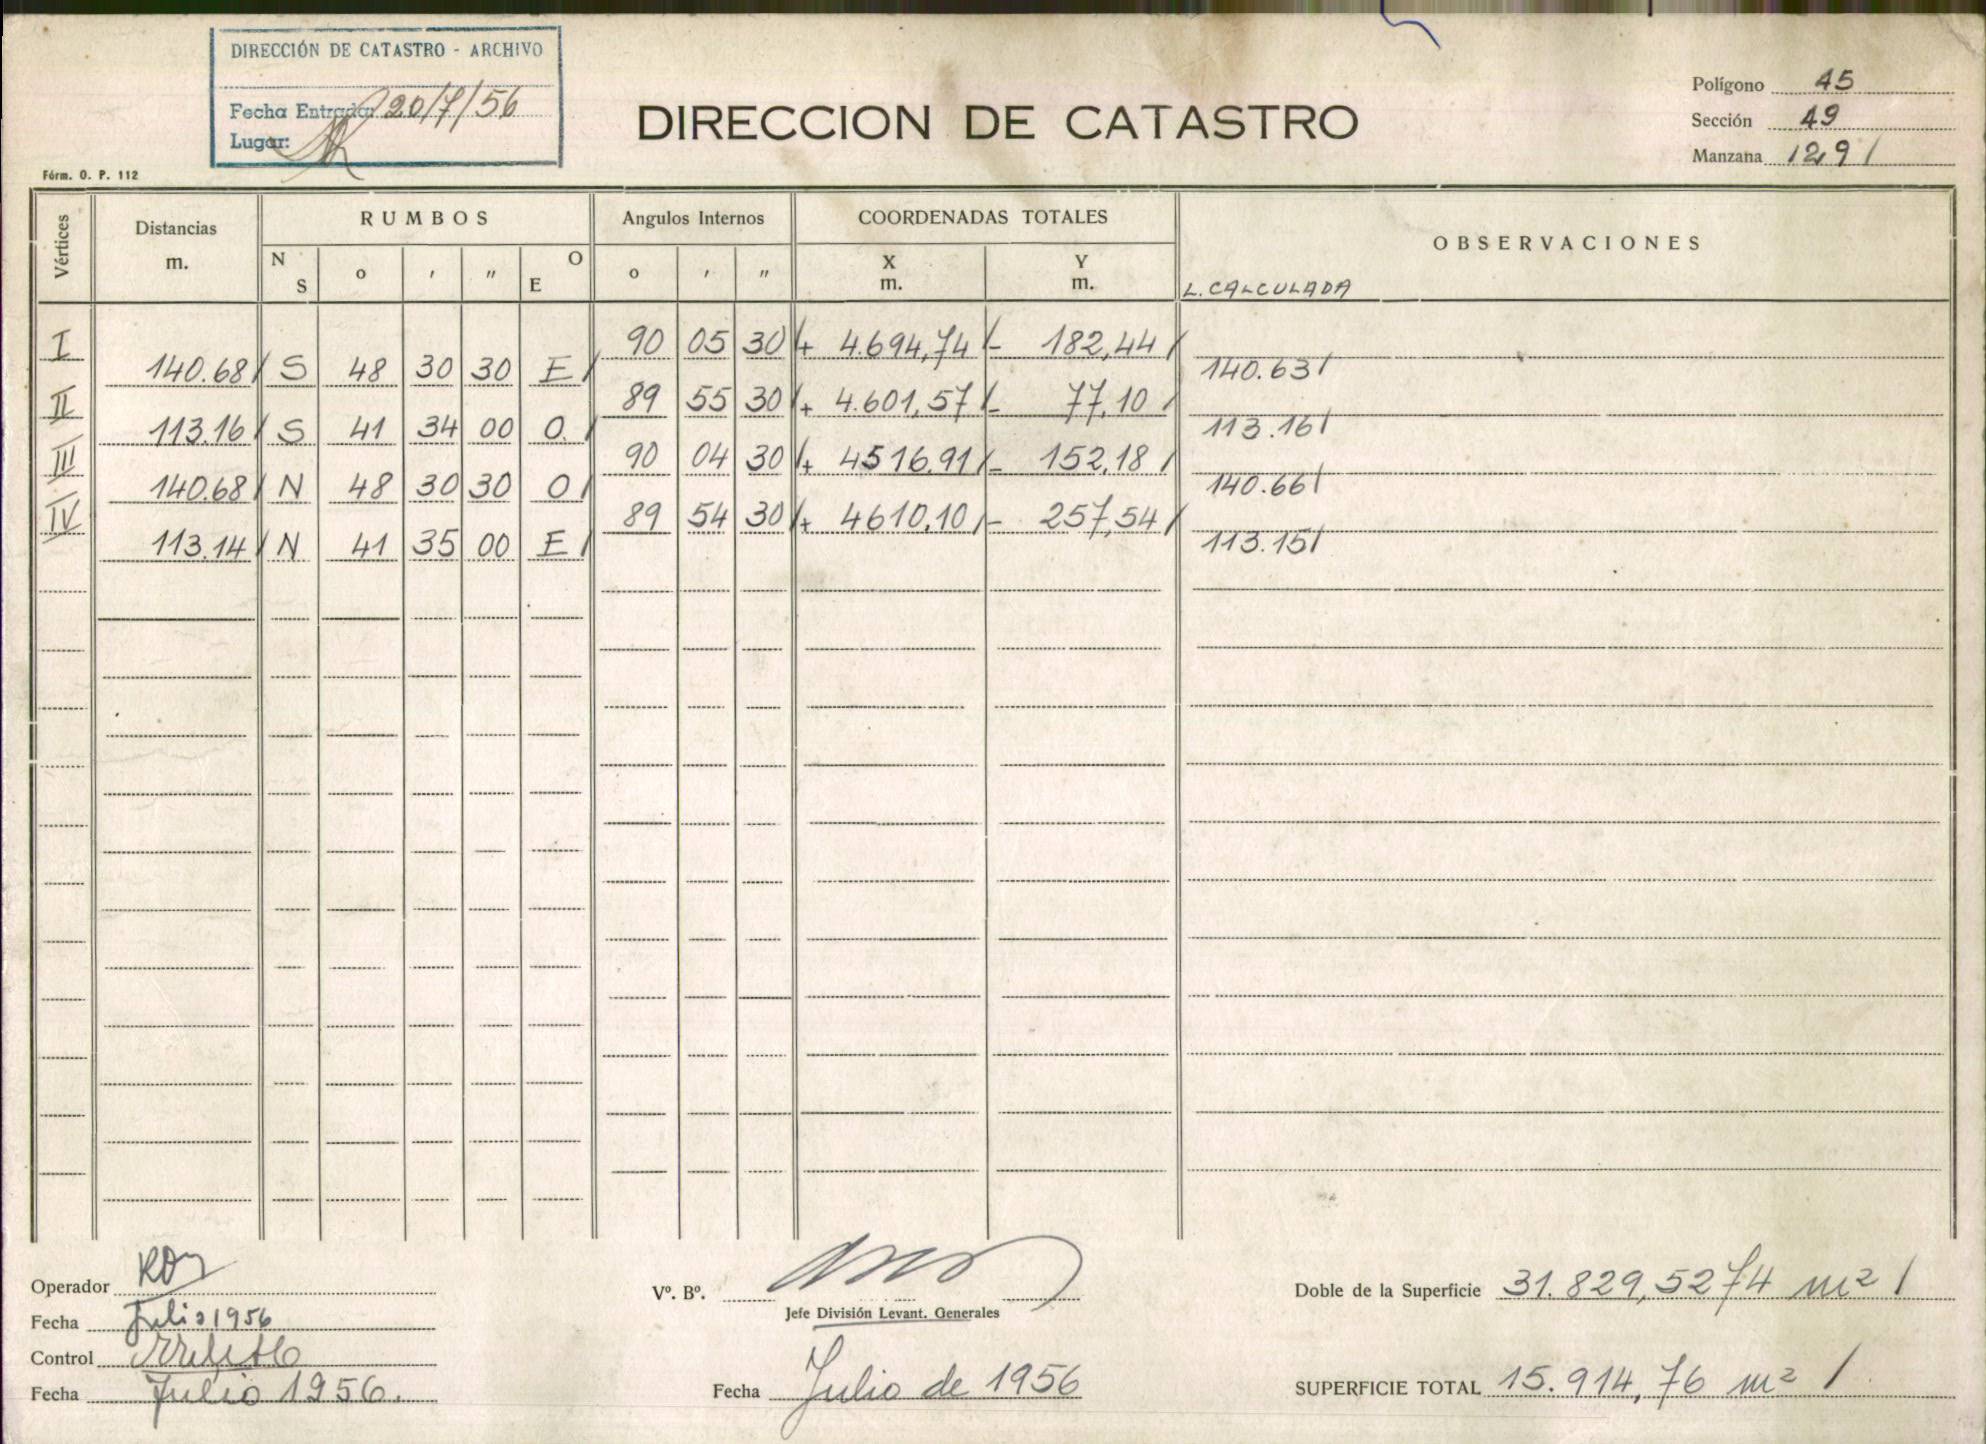 DIRECCIÓN DE CATASTRO - ARCHIVO
Fecha Entrada: 20/7/56
Lugar:
DIRECCION DE CATASTRO
Polígono 45
Sección 49
Manzana 1291
Fórm. O. P. 112
Vértices Distancias m. RUMBOS Angulos Internos COORDENADAS TOTALES OBSERVACIONES
N S o ' " O E o ' " X m. Y m. L. CALCULADA
I 90 05 30 + 4.694,74 - 182,44
140.68 S 48 30 30 E 140.63
II 89 55 30 + 4.601,57 - 77,10
113.16 S 41 34 00 O. 113.16
III 90 04 30 + 4516.91 - 152,18
140.68 N 48 30 30 O 140.66
IV 89 54 30 + 4610,10 - 257,54
113.14 N 41 35 00 E 113.15
Operador
Fecha Julio 1956
Control
Fecha Julio 1956.
Vº. Bº.
Jefe División Levant. Generales
Fecha Julio de 1956
Doble de la Superficie 31.829,5274 m²
SUPERFICIE TOTAL 15.914,76 m²